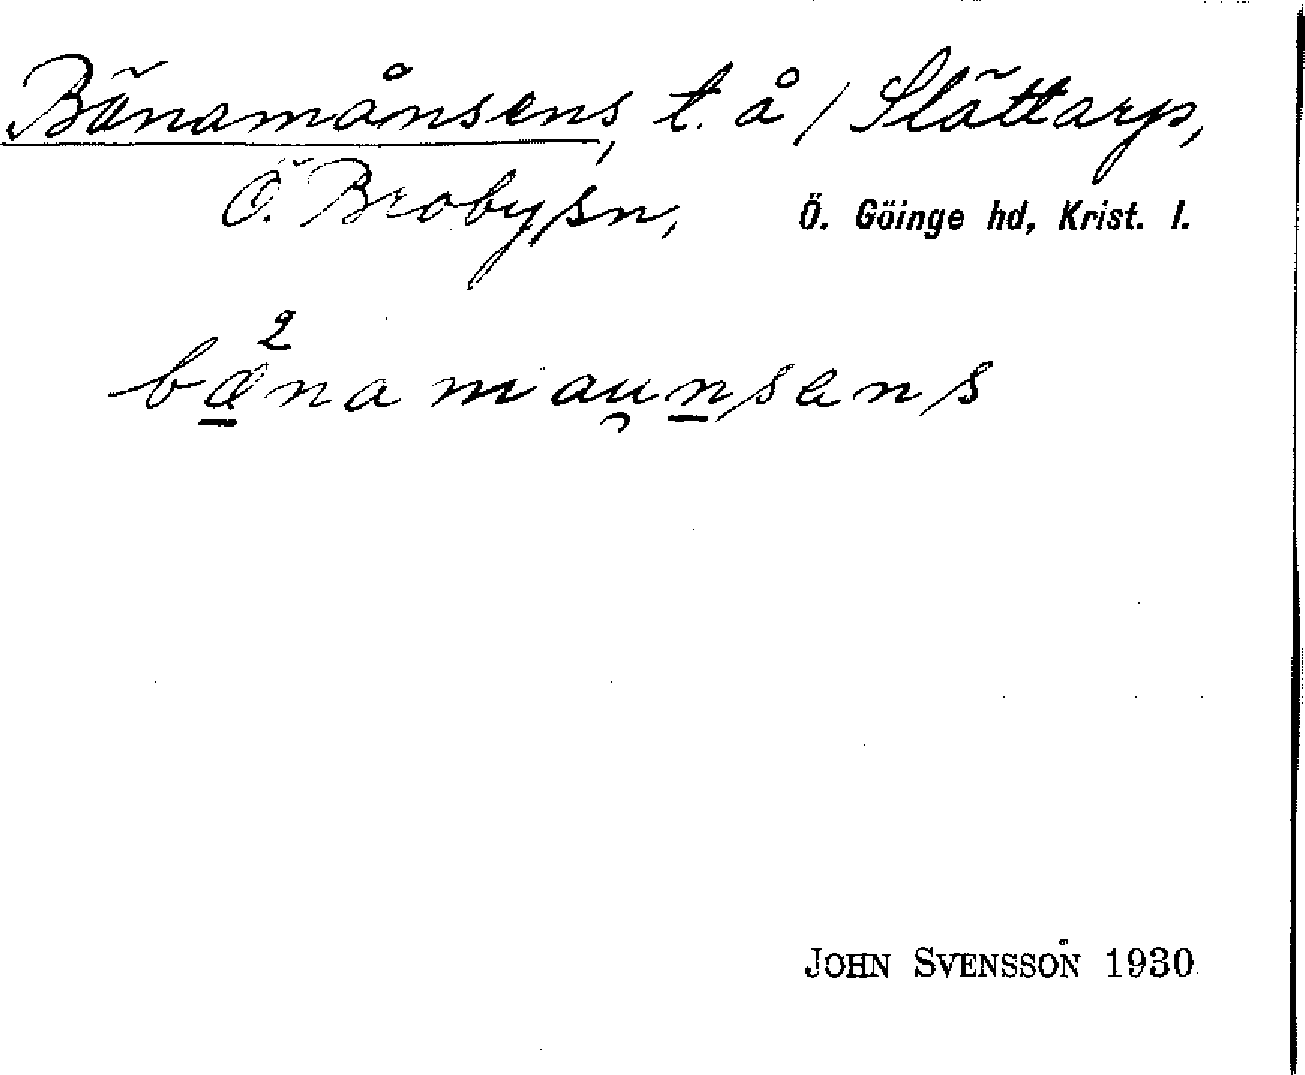 Bänamånsens, t. å / Slättarp,
Ö. Broby sn, Ö. Göinge hd, Krist. l.
2
bænamau̯nsens
JOHN SVENSSON 1930